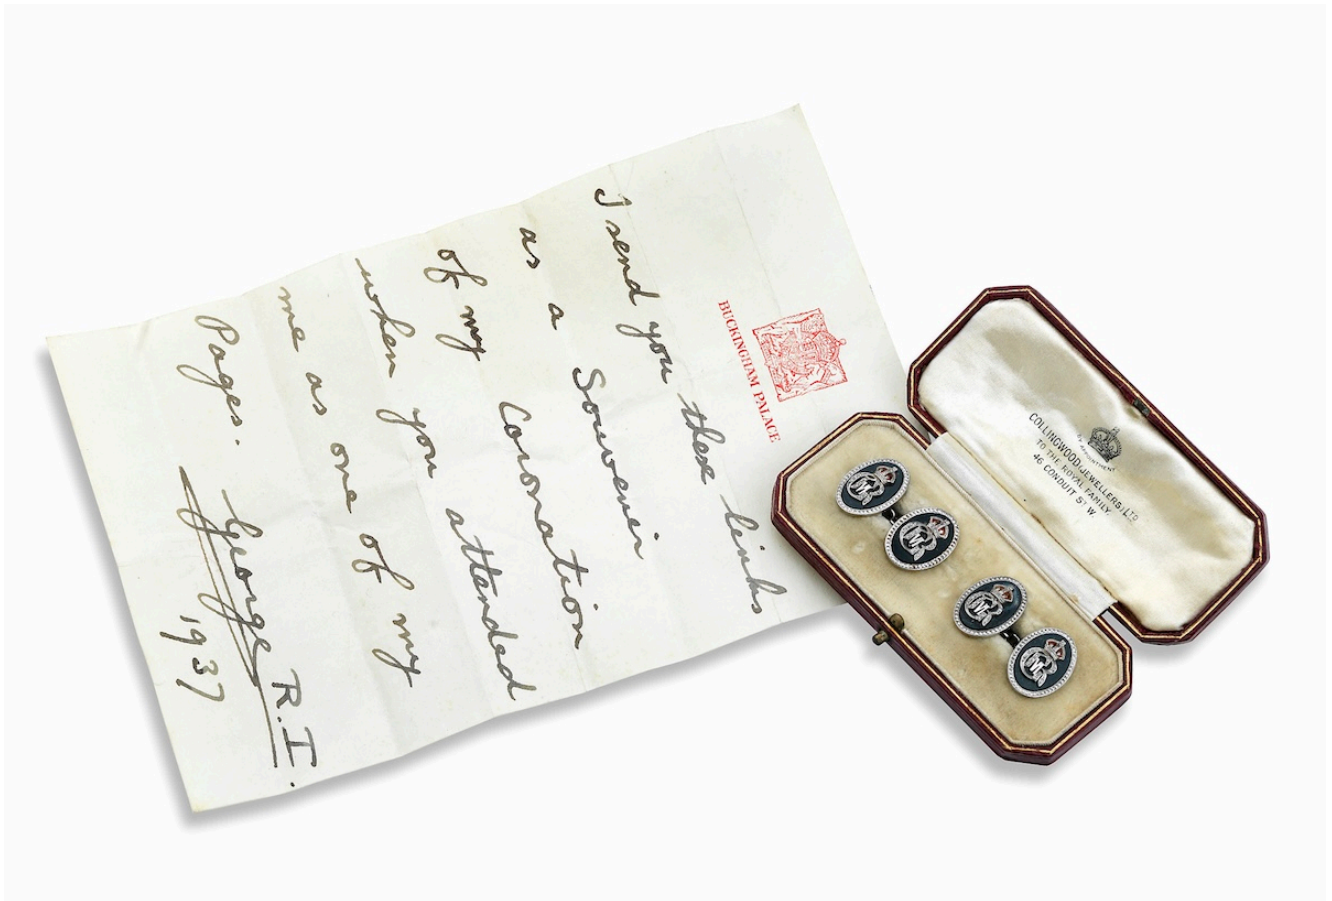 BUCKINGHAM PALACE
I send you these links
as a Souvenir
of my Coronation
when you attended
me as one of my
Pages.
George R.I.
1937
BY APPOINTMENT
COLLINGWOOD (JEWELLERS) LTD
TO THE ROYAL FAMILY.
46 CONDUIT ST W.